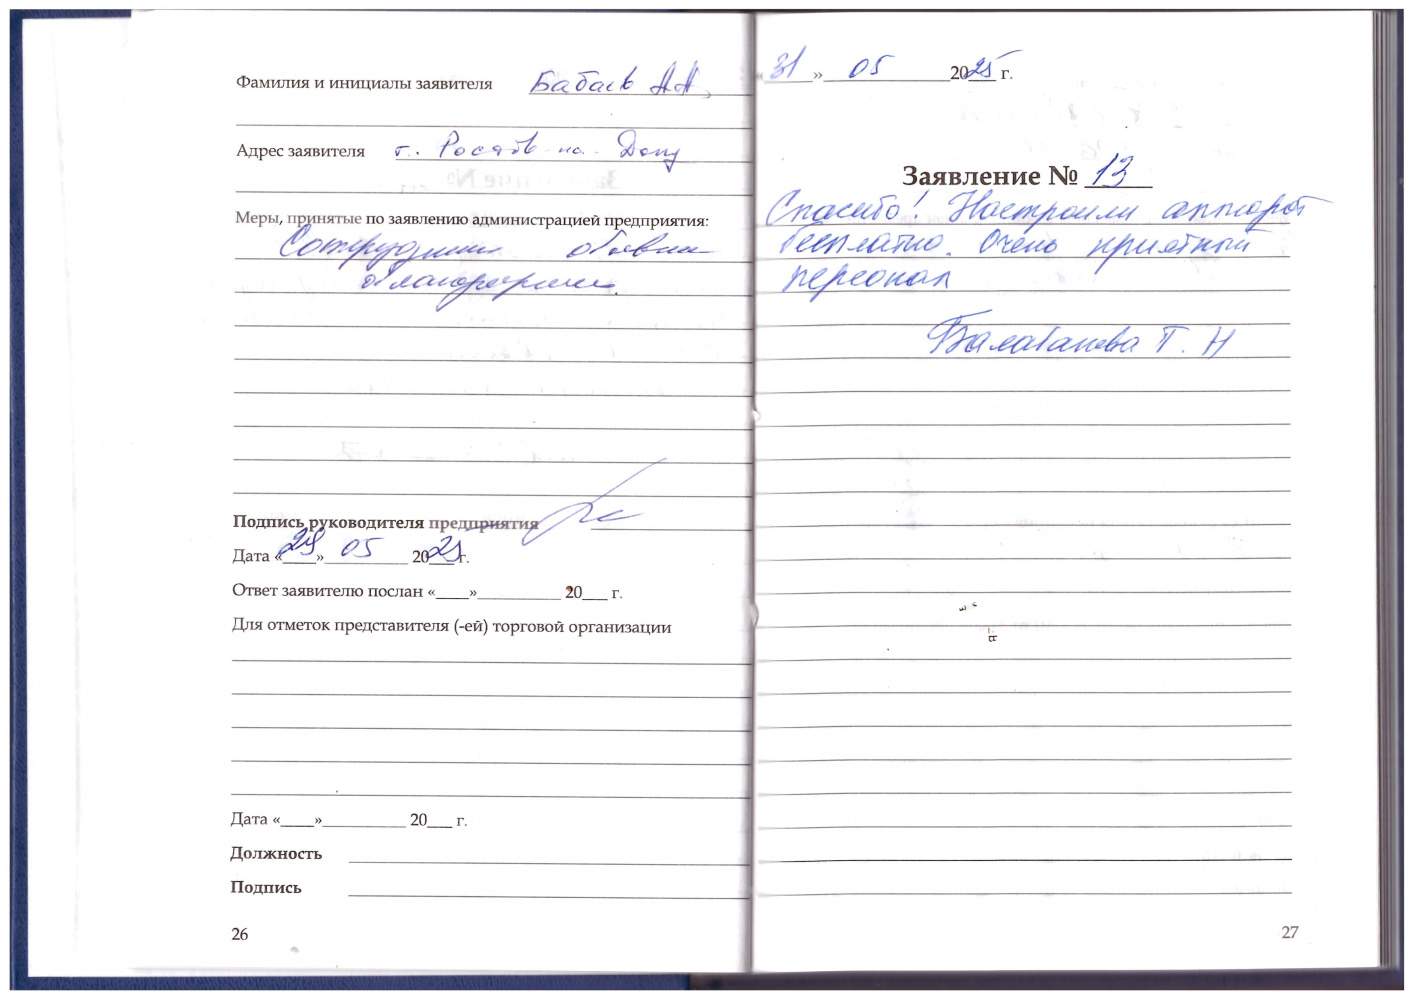 Фамилия и инициалы заявителя Бабаев А.А.
Адрес заявителя г. Ростов-на-Дону
Меры, принятые по заявлению администрацией предприятия:
Сотруднику объявлена
благодарность.
Подпись руководителя предприятия
Дата «29» 05 2025 г.
Ответ заявителю послан «____»__________ 20___ г.
Для отметок представителя (-ей) торговой организации
Дата «____»__________ 20___ г.
Должность
Подпись
26
«31» 05 2025 г.
Заявление № 13
Спасибо! Настроили аппарат
бесплатно. Очень приятный
персонал
Балабанова Т. Н
27